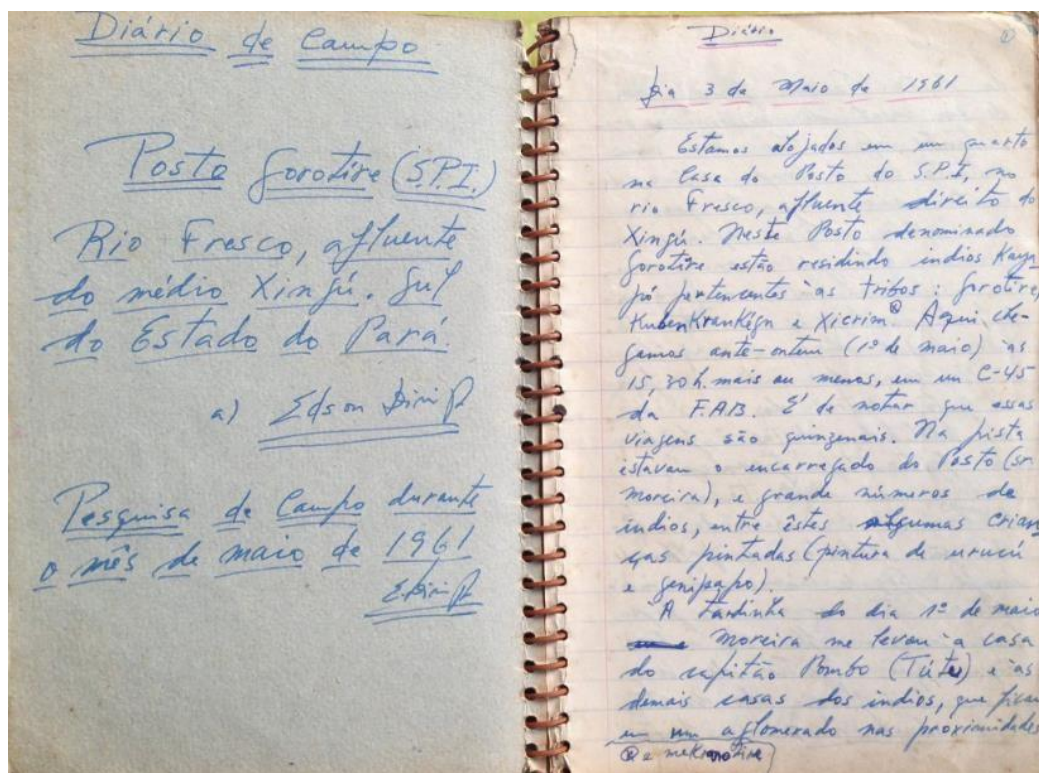 Diário de Campo
Posto Gorotire (S.P.I.)
Rio Fresco, afluente
do médio Xingú. Sul
do Estado do Pará.
a) Edson Diniz
Pesquisa de Campo durante
o mês de maio de 1961
E. Diniz
Diário
Dia 3 de Maio de 1961
Estamos alojados em um quarto
na Casa do Posto do S.P.I, no
rio Fresco, afluente direito do
Xingú. Neste Posto denominado
Gorotire estão residindo indios Kaya
pó pertencentes às tribos: Gorotire,
KubenKranKêgn e Xicrim. Aqui che-
gamos ante-ontem (1º de maio) às
15,30 h. mais ou menos, em um C-45
da F.A.B. É de notar que essas
viagens são quinzenais. Na pista
estavam o encarregado do Posto (sr.
Moreira), e grande números de
indios, entre êstes algumas crian
ças pintadas (pintura de urucú
e genipapo).
A tardinha do dia 1º de maio
Moreira me levou à casa
do capitão Pombo (Túte) e às
demais casas dos indios, que ficam
em um aglomerado nas proximidades
e meKranotire